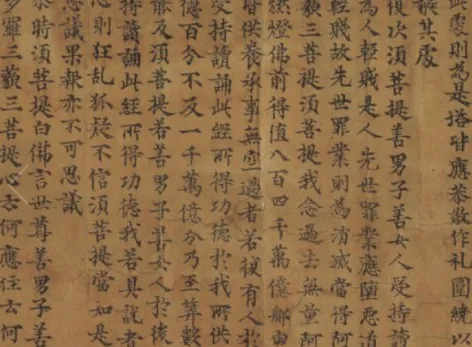 此處則為是塔皆應恭敬作礼圍繞以
散其處
復次須菩提善男子善女人受持讀
為人輕賤是人先世罪業應堕惡道
輕賤故先世罪業則為消滅當得阿
藐三菩提須菩提我念過去無量阿
然燈佛前得值八百四千萬億那由
皆供養承事無空過者若復有人於
受持讀誦此經所得功德於我所供
德百分不及一千萬億分乃至筭數
能及須菩提若善男子善女人於後
持讀誦此經所得功德我若具說者
心則狂乱狐疑不信須菩提當知是
思議果報亦不可思議
時須菩提白佛言世尊善男子善
多羅三藐三菩提心云何應住云何